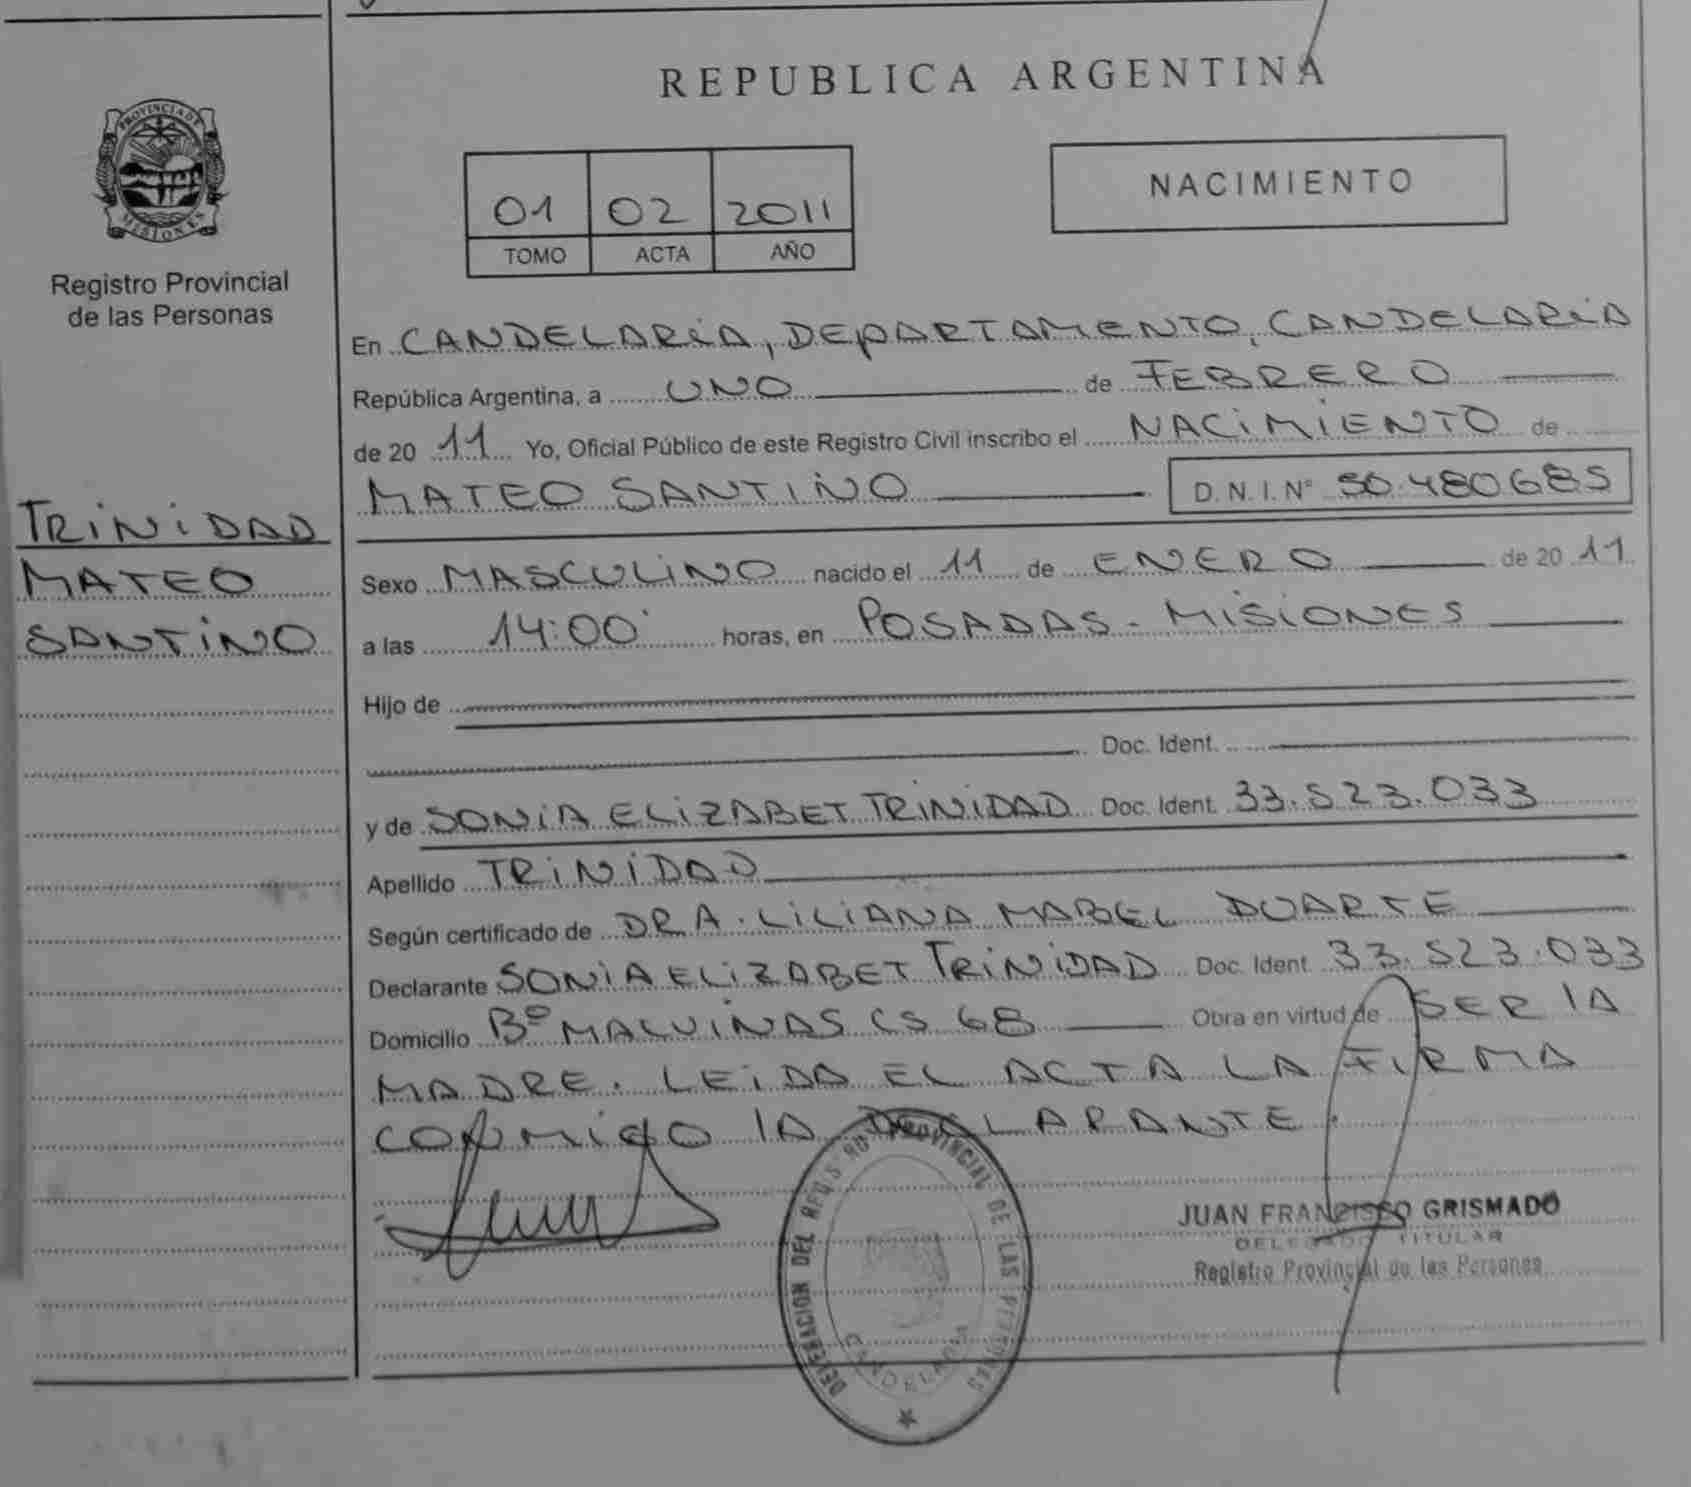 REPUBLICA ARGENTINA
PROVINCIA DE MISIONES
Registro Provincial
de las Personas
01 02 2011
TOMO ACTA AÑO
NACIMIENTO
TRINIDAD
MATEO
SANTINO
En CANDELARIA, DEPARTAMENTO, CANDELARIA
República Argentina, a UNO de FEBRERO
de 20 11 Yo, Oficial Público de este Registro Civil inscribo el NACIMIENTO de
MATEO SANTINO D.N.I.Nº 50.480685
Sexo MASCULINO nacido el 11 de ENERO de 20 11
a las 14:00 horas, en POSADAS - MISIONES
Hijo de
Doc. Ident.
y de SONIA ELIZABET TRINIDAD Doc. Ident. 33.523.033
Apellido TRINIDAD
Según certificado de DRA. LILIANA MABEL DUARTE
Declarante SONIA ELIZABET TRINIDAD Doc. Ident. 33.523.033
Domicilio Bº MALVINAS CS 68 Obra en virtud de SER LA
MADRE. LEIDA EL ACTA LA FIRMA
CONMIGO LA DECLARANTE.
DELEGACION DEL REGISTRO PROVINCIAL DE LAS PERSONAS
CANDELARIA
JUAN FRANCISCO GRISMADO
DELEGADO TITULAR
Registro Provincial de las Personas